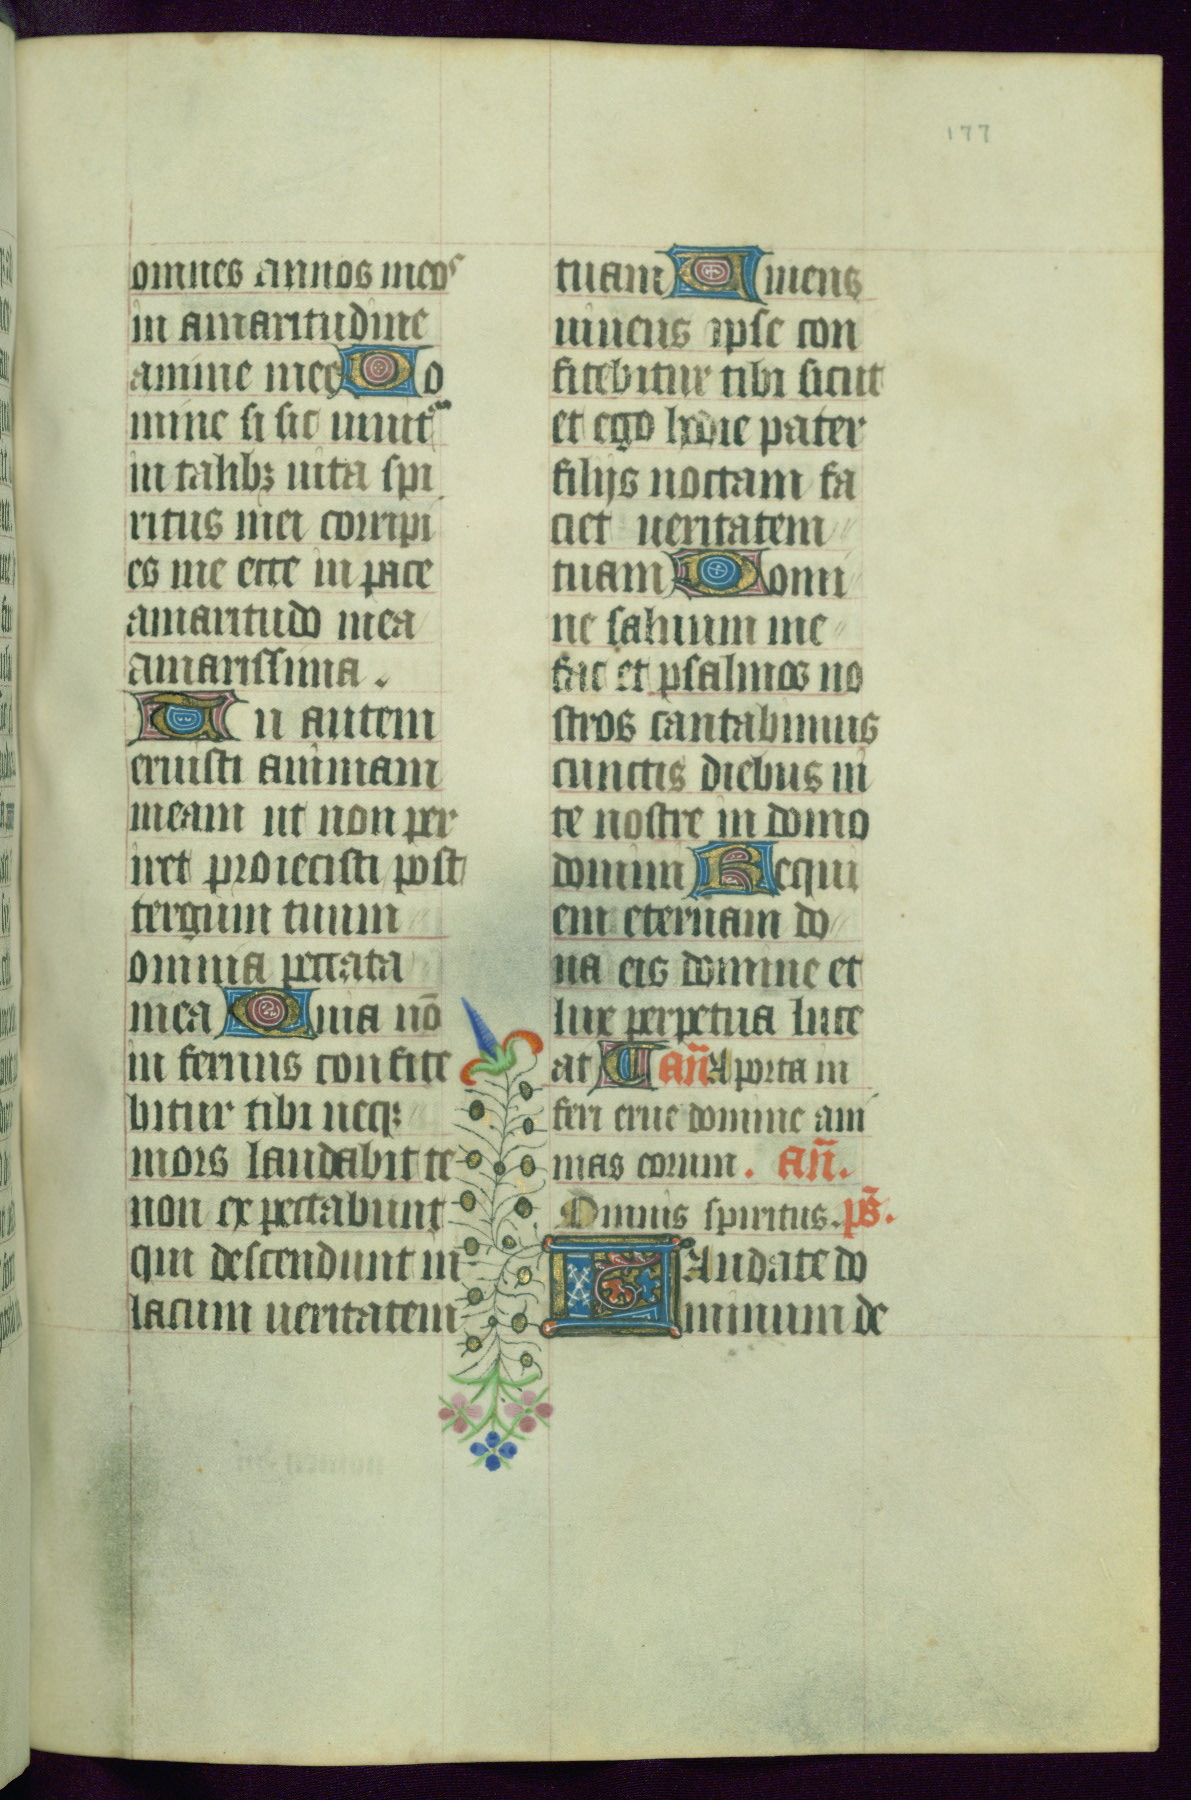 177
omnes annos meos
in amaritudine
anime mee Do
mine si sic uiuit
in talibꝫ uita spi
ritus mei corripi
es me ecce in pace
amaritudo mea
amarissima.
Tu autem
eruisti animam
meam ut non per
iret proiecisti post
tergum tuum
omnia peccata
mea Quia nō
in fernus confite
bitur tibi neqꝫ
mors laudabit te
non expectabunt
qui descendunt in
lacum ueritatem
tuam Uiuens
uiuens ipse con
fitebitur tibi sicut
et ego hodie pater
filijs noctam fa
ciet ueritatem
tuam Domi
ne saluum me
fac et psalmos no
stros cantabimus
cunctis diebus ui
te nostre in domo
domini Requi
em eternam do
na eis domine et
lux perpetua luce
at añ A porta in
feri erue domine ani
mas eorum. añ.
Omnis spiritus. ps̄.
Laudate do
minum de